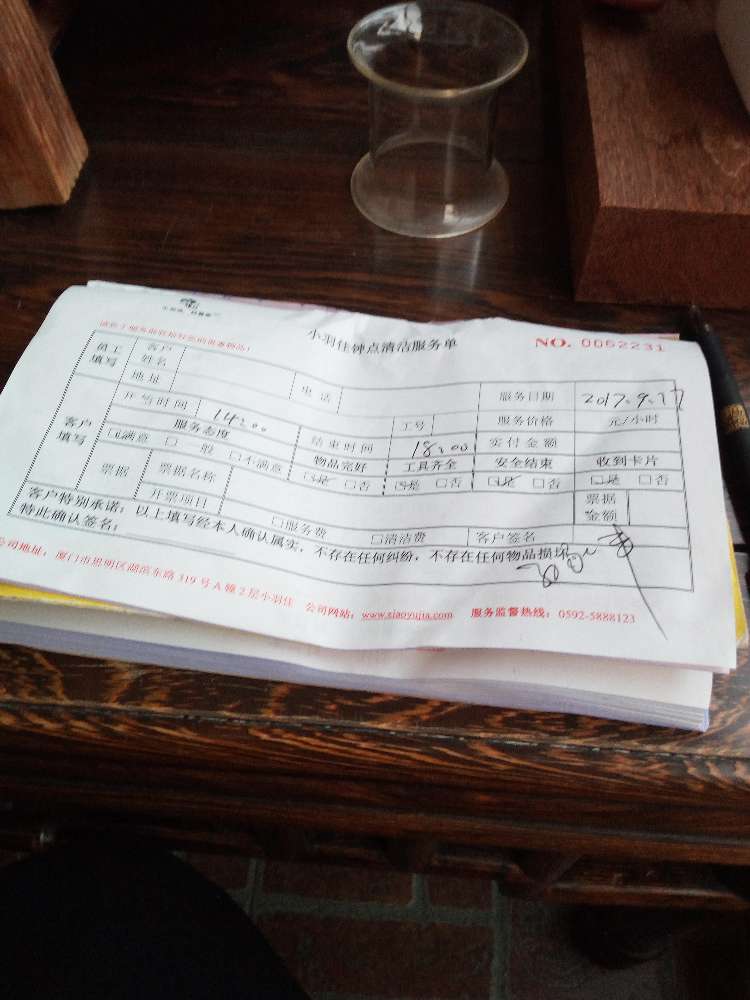 小羽佳钟点清洁服务单
NO. 0052231
员工填写 客户姓名
地址 电话 服务日期 2017.9.17
客户填写 开始时间 14:00 工号 服务价格 元/小时
服务态度 结束时间 18:00 实付金额
☑满意 □一般 □不满意 物品完好 工具齐全 安全结束 收到卡片
☑是 □否 ☑是 □否 ☑是 □否 □是 □否
票据 票据名称 票据金额
开票项目 □服务费 □清洁费 客户签名
客户特别承诺：以上填写经本人确认属实，不存在任何纠纷，不存在任何物品损坏
特此确认签名：
公司地址：厦门市思明区湖滨东路319号A幢2层小羽佳 公司网站：www.xiaoyujia.com 服务监督热线：0592-5888123